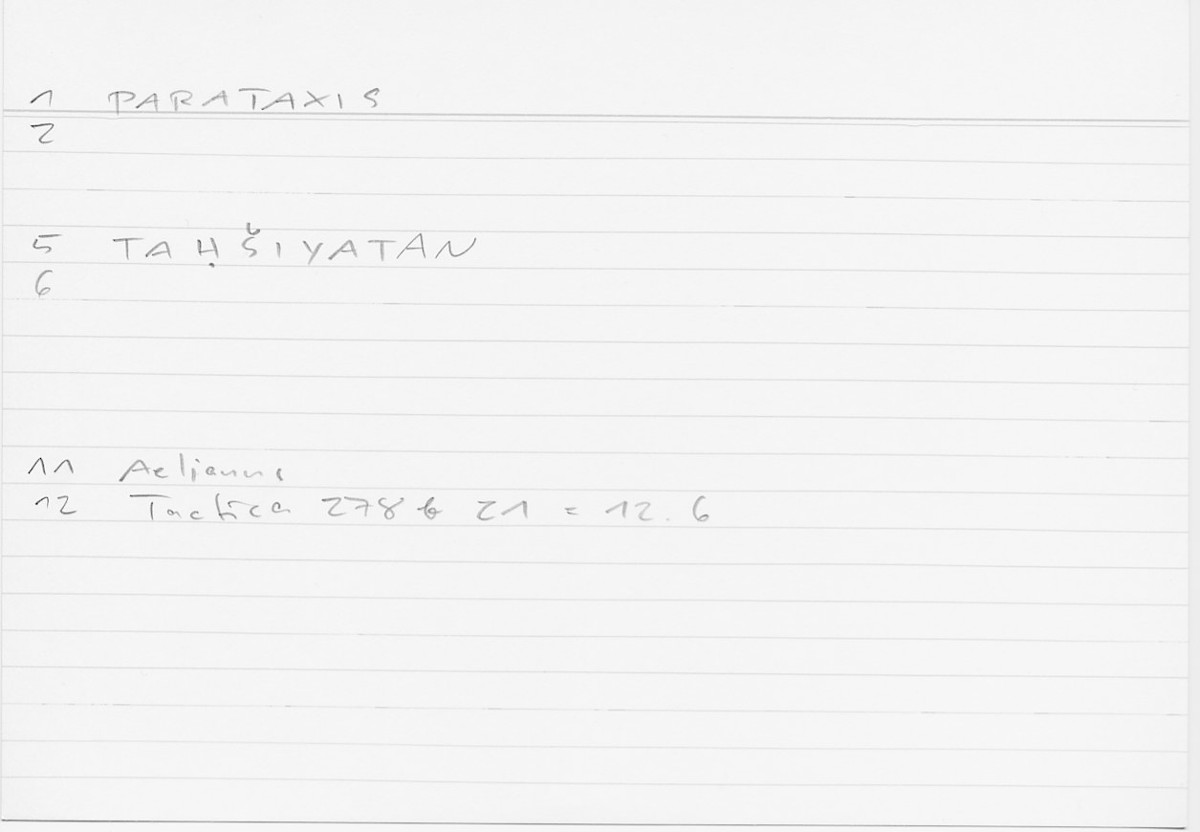 1 PARATAXIS
2
5 TAḤŠIYATAN
6
11 Aelianus
12 Tactica 278 b 21 = 12.6